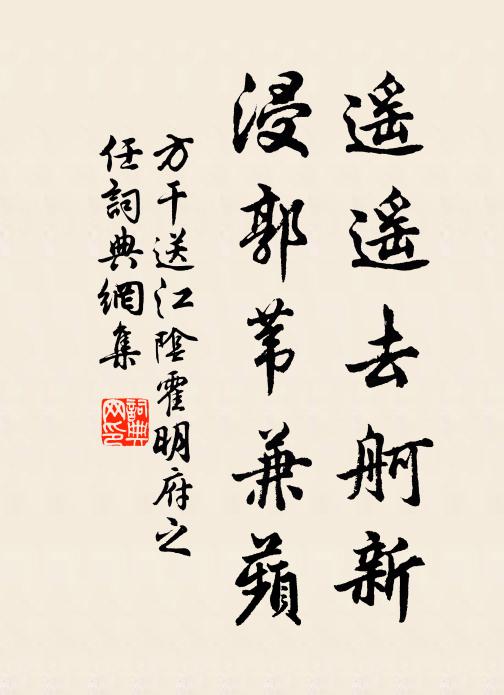 遥遥去舸新
浸郭苇兼蘋
方干送江陰霍明府之
任詞典網集
詞典网印